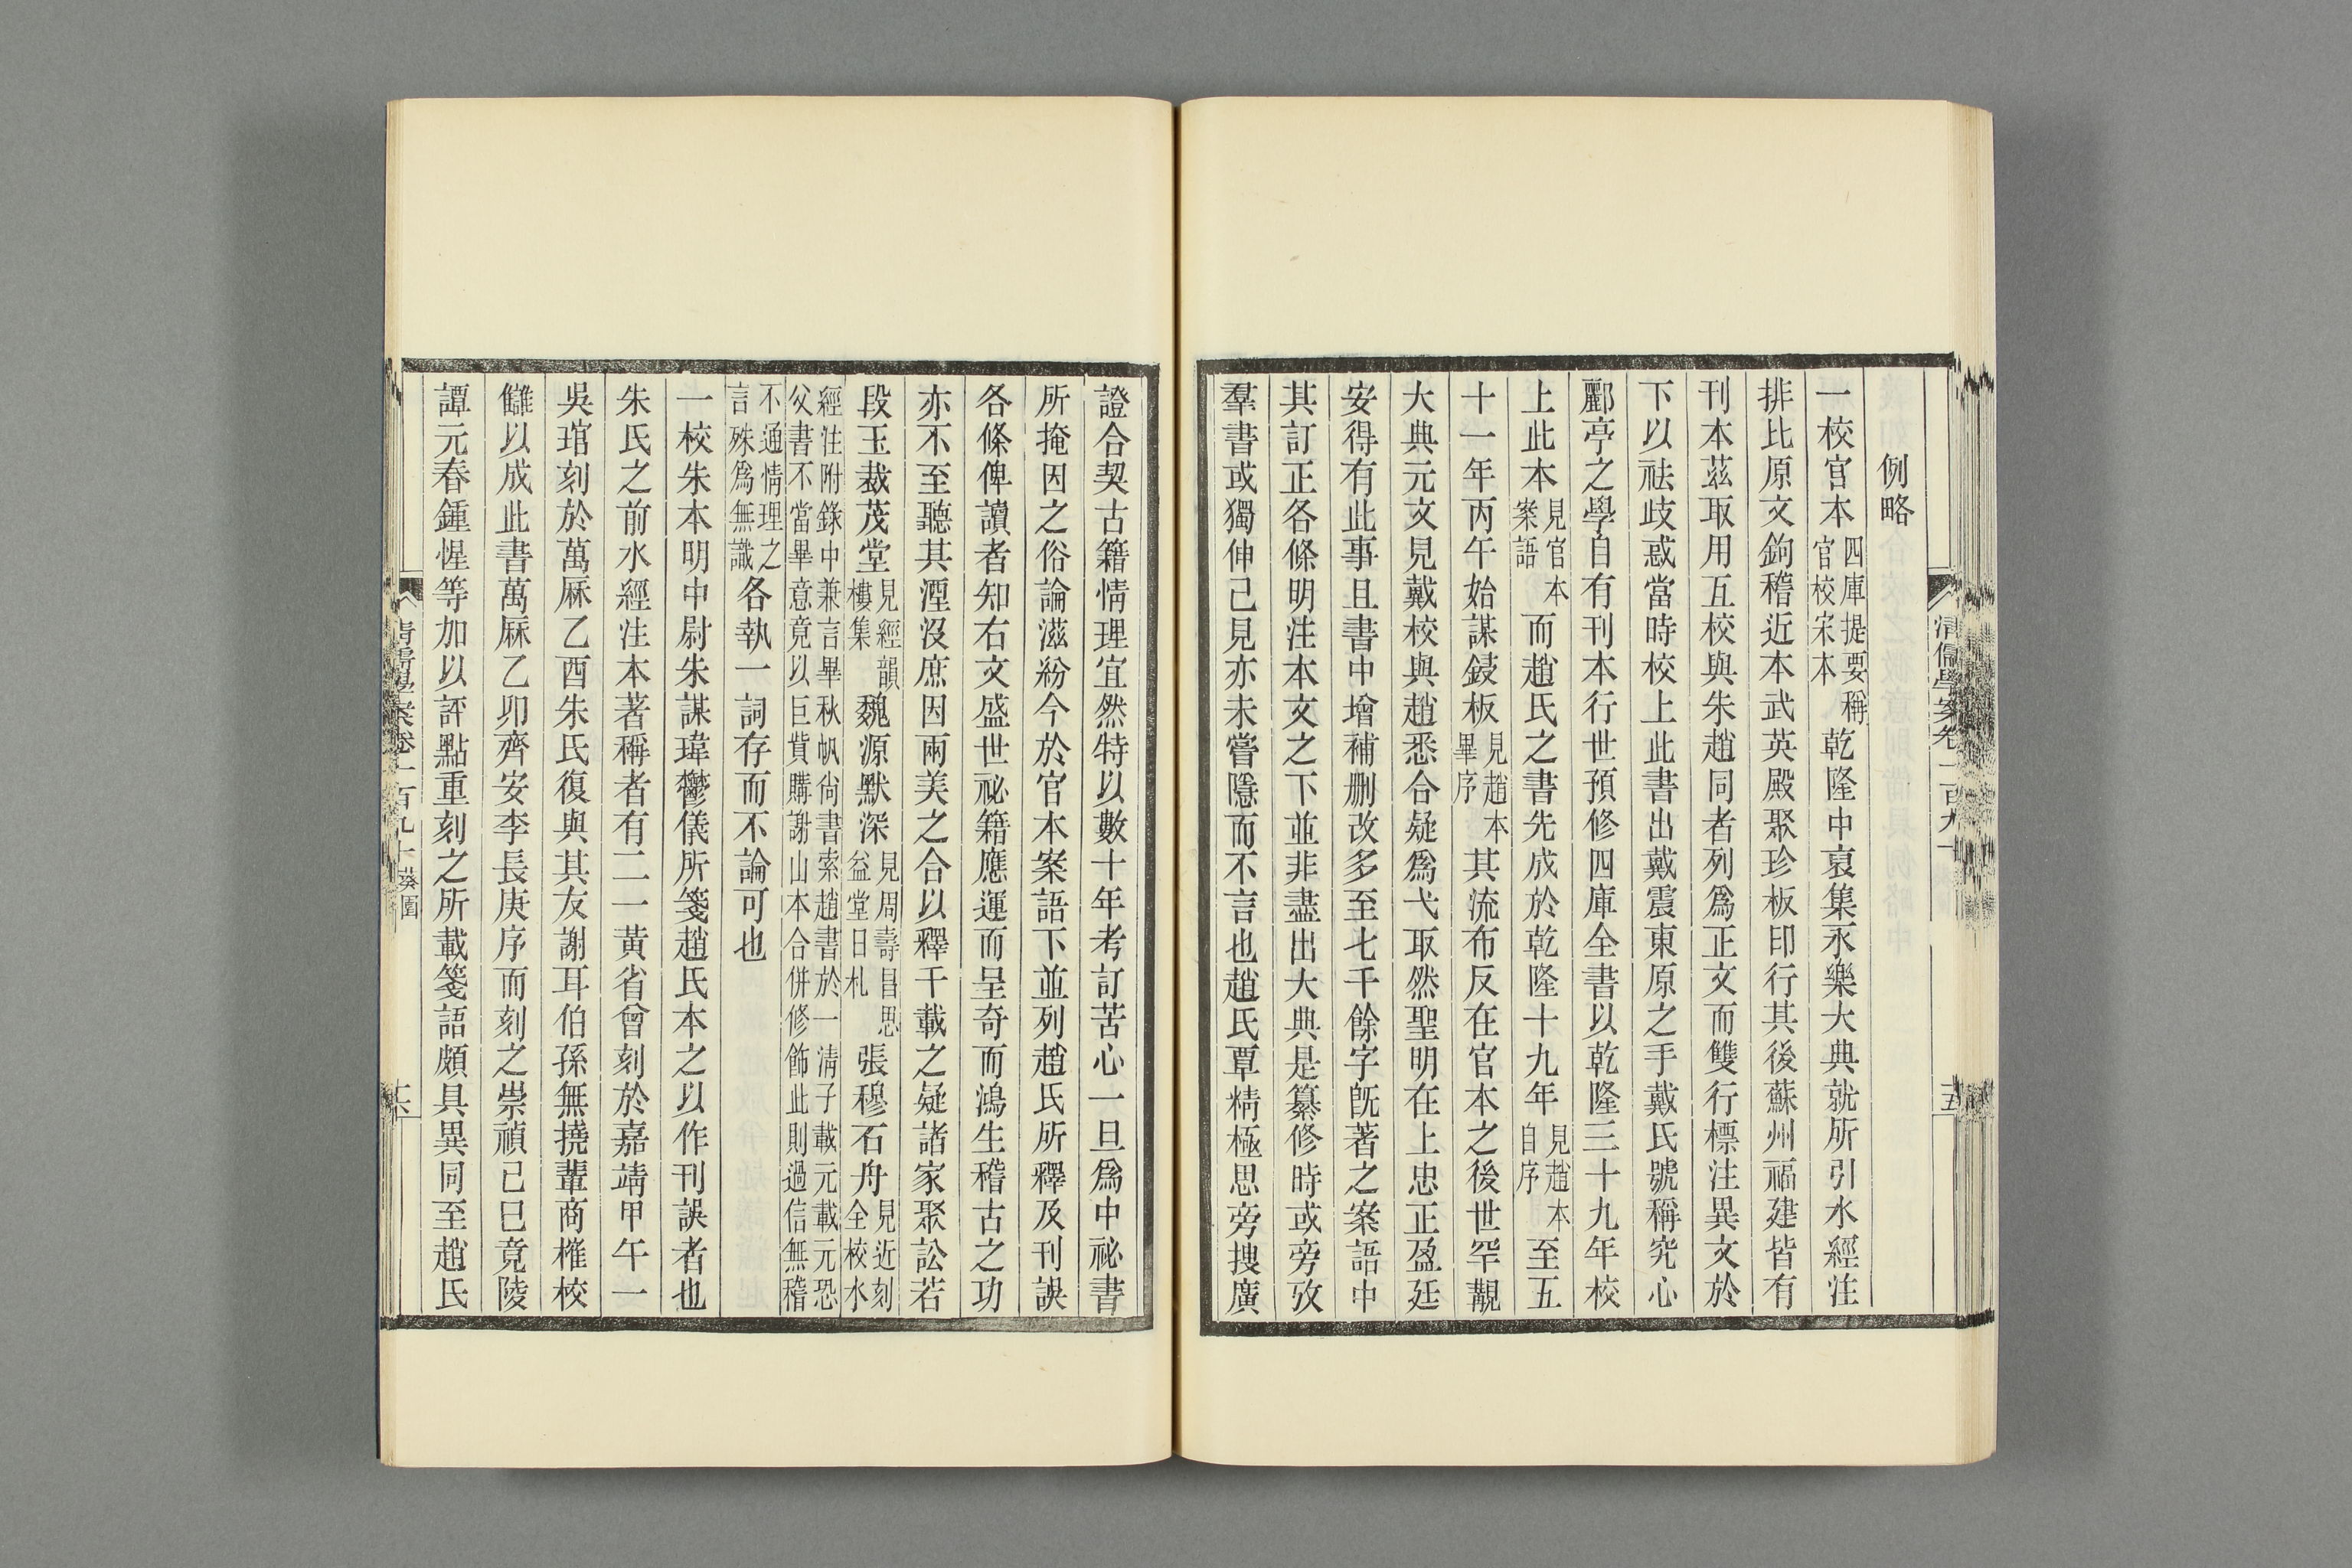 清儒學案卷一百九十
十五
例略
一校官本四庫提要稱官校宋本乾隆中裒集永樂大典就所引水經注
排比原文鉤稽近本武英殿聚珍板印行其後蘇州福建皆有
刊本茲取用五校與朱趙同者列爲正文而雙行標注異文於
下以祛歧惑當時校上此書出戴震東原之手戴氏號稱究心
酈亭之學自有刊本行世預修四庫全書以乾隆三十九年校
上此本見官本案語而趙氏之書先成於乾隆十九年見趙本自序至五
十一年丙午始謀鋟板見趙本畢序其流布反在官本之後世罕覯
大典元文見戴校與趙悉合疑爲弋取然聖明在上忠正盈廷
安得有此事且書中增補刪改多至七千餘字旣著之案語中
其訂正各條明注本文之下並非盡出大典是纂修時或旁攷
羣書或獨伸己見亦未嘗隱而不言也趙氏覃精極思旁搜廣
證合契古籍情理宜然特以數十年考訂苦心一旦爲中祕書
所掩因之俗論滋紛今於官本案語下並列趙氏所釋及刊誤
各條俾讀者知右文盛世祕籍應運而呈奇而鴻生稽古之功
亦不至聽其湮沒庶因兩美之合以釋千載之疑諸家聚訟若
段玉裁茂堂見經韻樓集魏源默深見周壽昌思益堂日札張穆石舟見近刻全校水
經注附錄中兼言畢秋帆尙書索趙書於一清子載元載元恐父書不當畢意竟以巨貲購謝山本合併修飾此則過信無稽
不通情理之言殊爲無識各執一詞存而不論可也
一校朱本明中尉朱謀㙔鬱儀所箋趙氏本之以作刊誤者也
朱氏之前水經注本著稱者有二一黃省曾刻於嘉靖甲午一
吳琯刻於萬厤乙酉朱氏復與其友謝耳伯孫無撓輩商榷校
讎以成此書萬厤乙卯齊安李長庚序而刻之崇禎己巳竟陵
譚元春鍾惺等加以評點重刻之所載箋語頗具異同至趙氏
清儒學案卷一百九十 葵園
十六